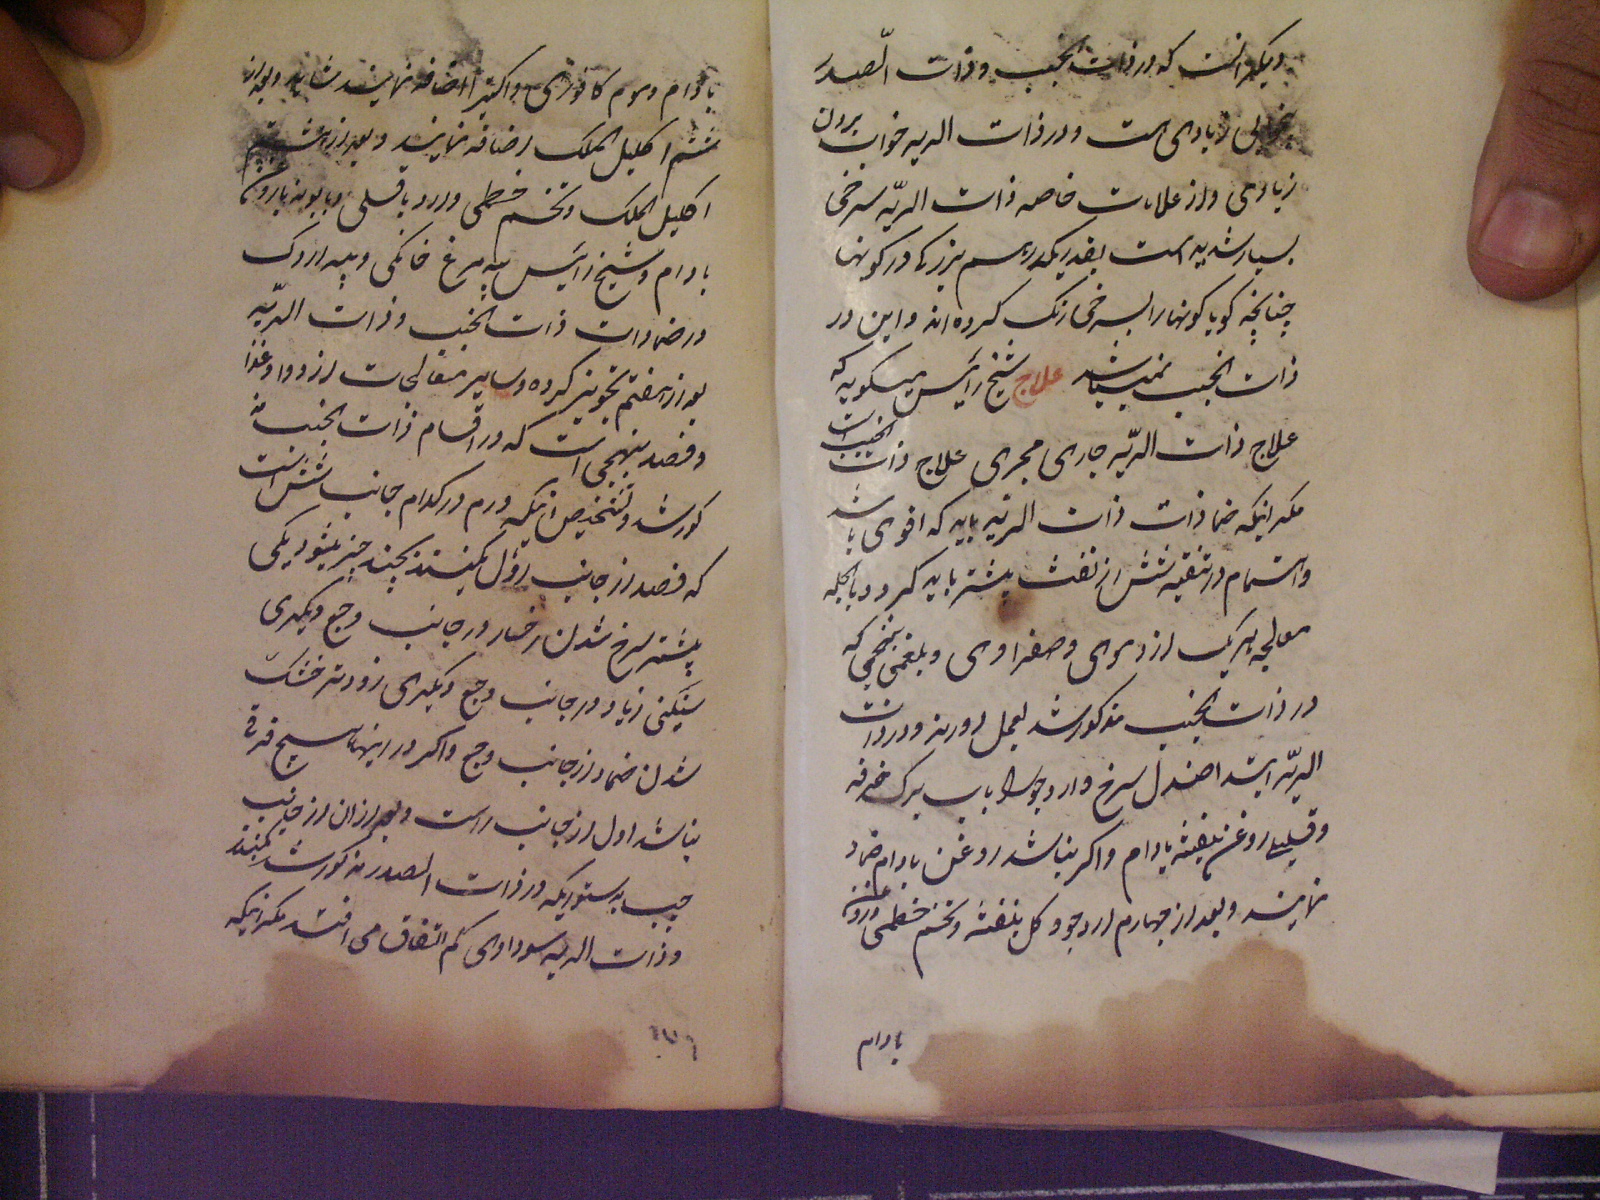 دیگر آنست که در ذات الجنب و ذات الصدر
بیخوابی زیادی است و در ذات الریه خواب برون
زیادی و از علامات خاصه ذات الریّه سرخی
بسیار شدید است بقدر یکدرهم بزرک در کونها
چنانچه کویا کونها را بسرخی رنک کرده اند و این در
ذات الجنب نمیباشد علاج شیخ رئیس میکوید که
علاج ذات الریّه جاری مجری علاج ذات الجنب است
مکر اینکه ضمادات ذات الریه باید که اقوی باشد
و اهتمام در تنقیه شش از نفث بیشتر باید کرد و بالجمله
معالجه هر یک از دموی و صفراوی و بلغمی بنهجی که
در ذات الجنب مذکور شد بعمل اورند و در ذات
الریّه ابتدا صندل سرخ و ارد جو با اب برک خرفه
و قلیلی روغن بنفشه بادام و اکر نباشد روغن بادام ضماد
نمایند و بعد از چهارم ارد جو و کل بنفشه و تخم خطمی و روغن
بادام
بادام و موم کافوری و اکتیرا اضافه نمایند شاید و بعد از
ششم اکلیل الملک اضافه نمایند و بعد از هشتم
اکلیل الملک و تخم خطمی و ارد باقلی و بابونه با روغن
بادام و شیخ رئیس پیه مرغ خانکی و پیه اردک
در ضمادات ذات الجنب و ذات الریّه
بعد از هفتم تجویز کرده و سایر معالجات از دوا و غذا
و فصد بنهجی است که در اقسام ذات الجنب
مذکور شد و تشخیص اینکه ورم در کدام جانب شش است
که فصد از جانب اول کنند بچند چیز میشود یکی
بیشتر سرخ شدن رخسار در جانب وجع دیکری
سنکینی زیاد در جانب وجع دیکری زودتر خشک
شدن ضماد از جانب وجع و اکر در اینها هیچ فرق
نباشد اول از جانب راست و بعد از ان از جانب
چپ بدستوریکه در ذات الصدر مذکور شد کنند
و ذات الریه سوداوی کم اتفاق می افتد مکر اینکه